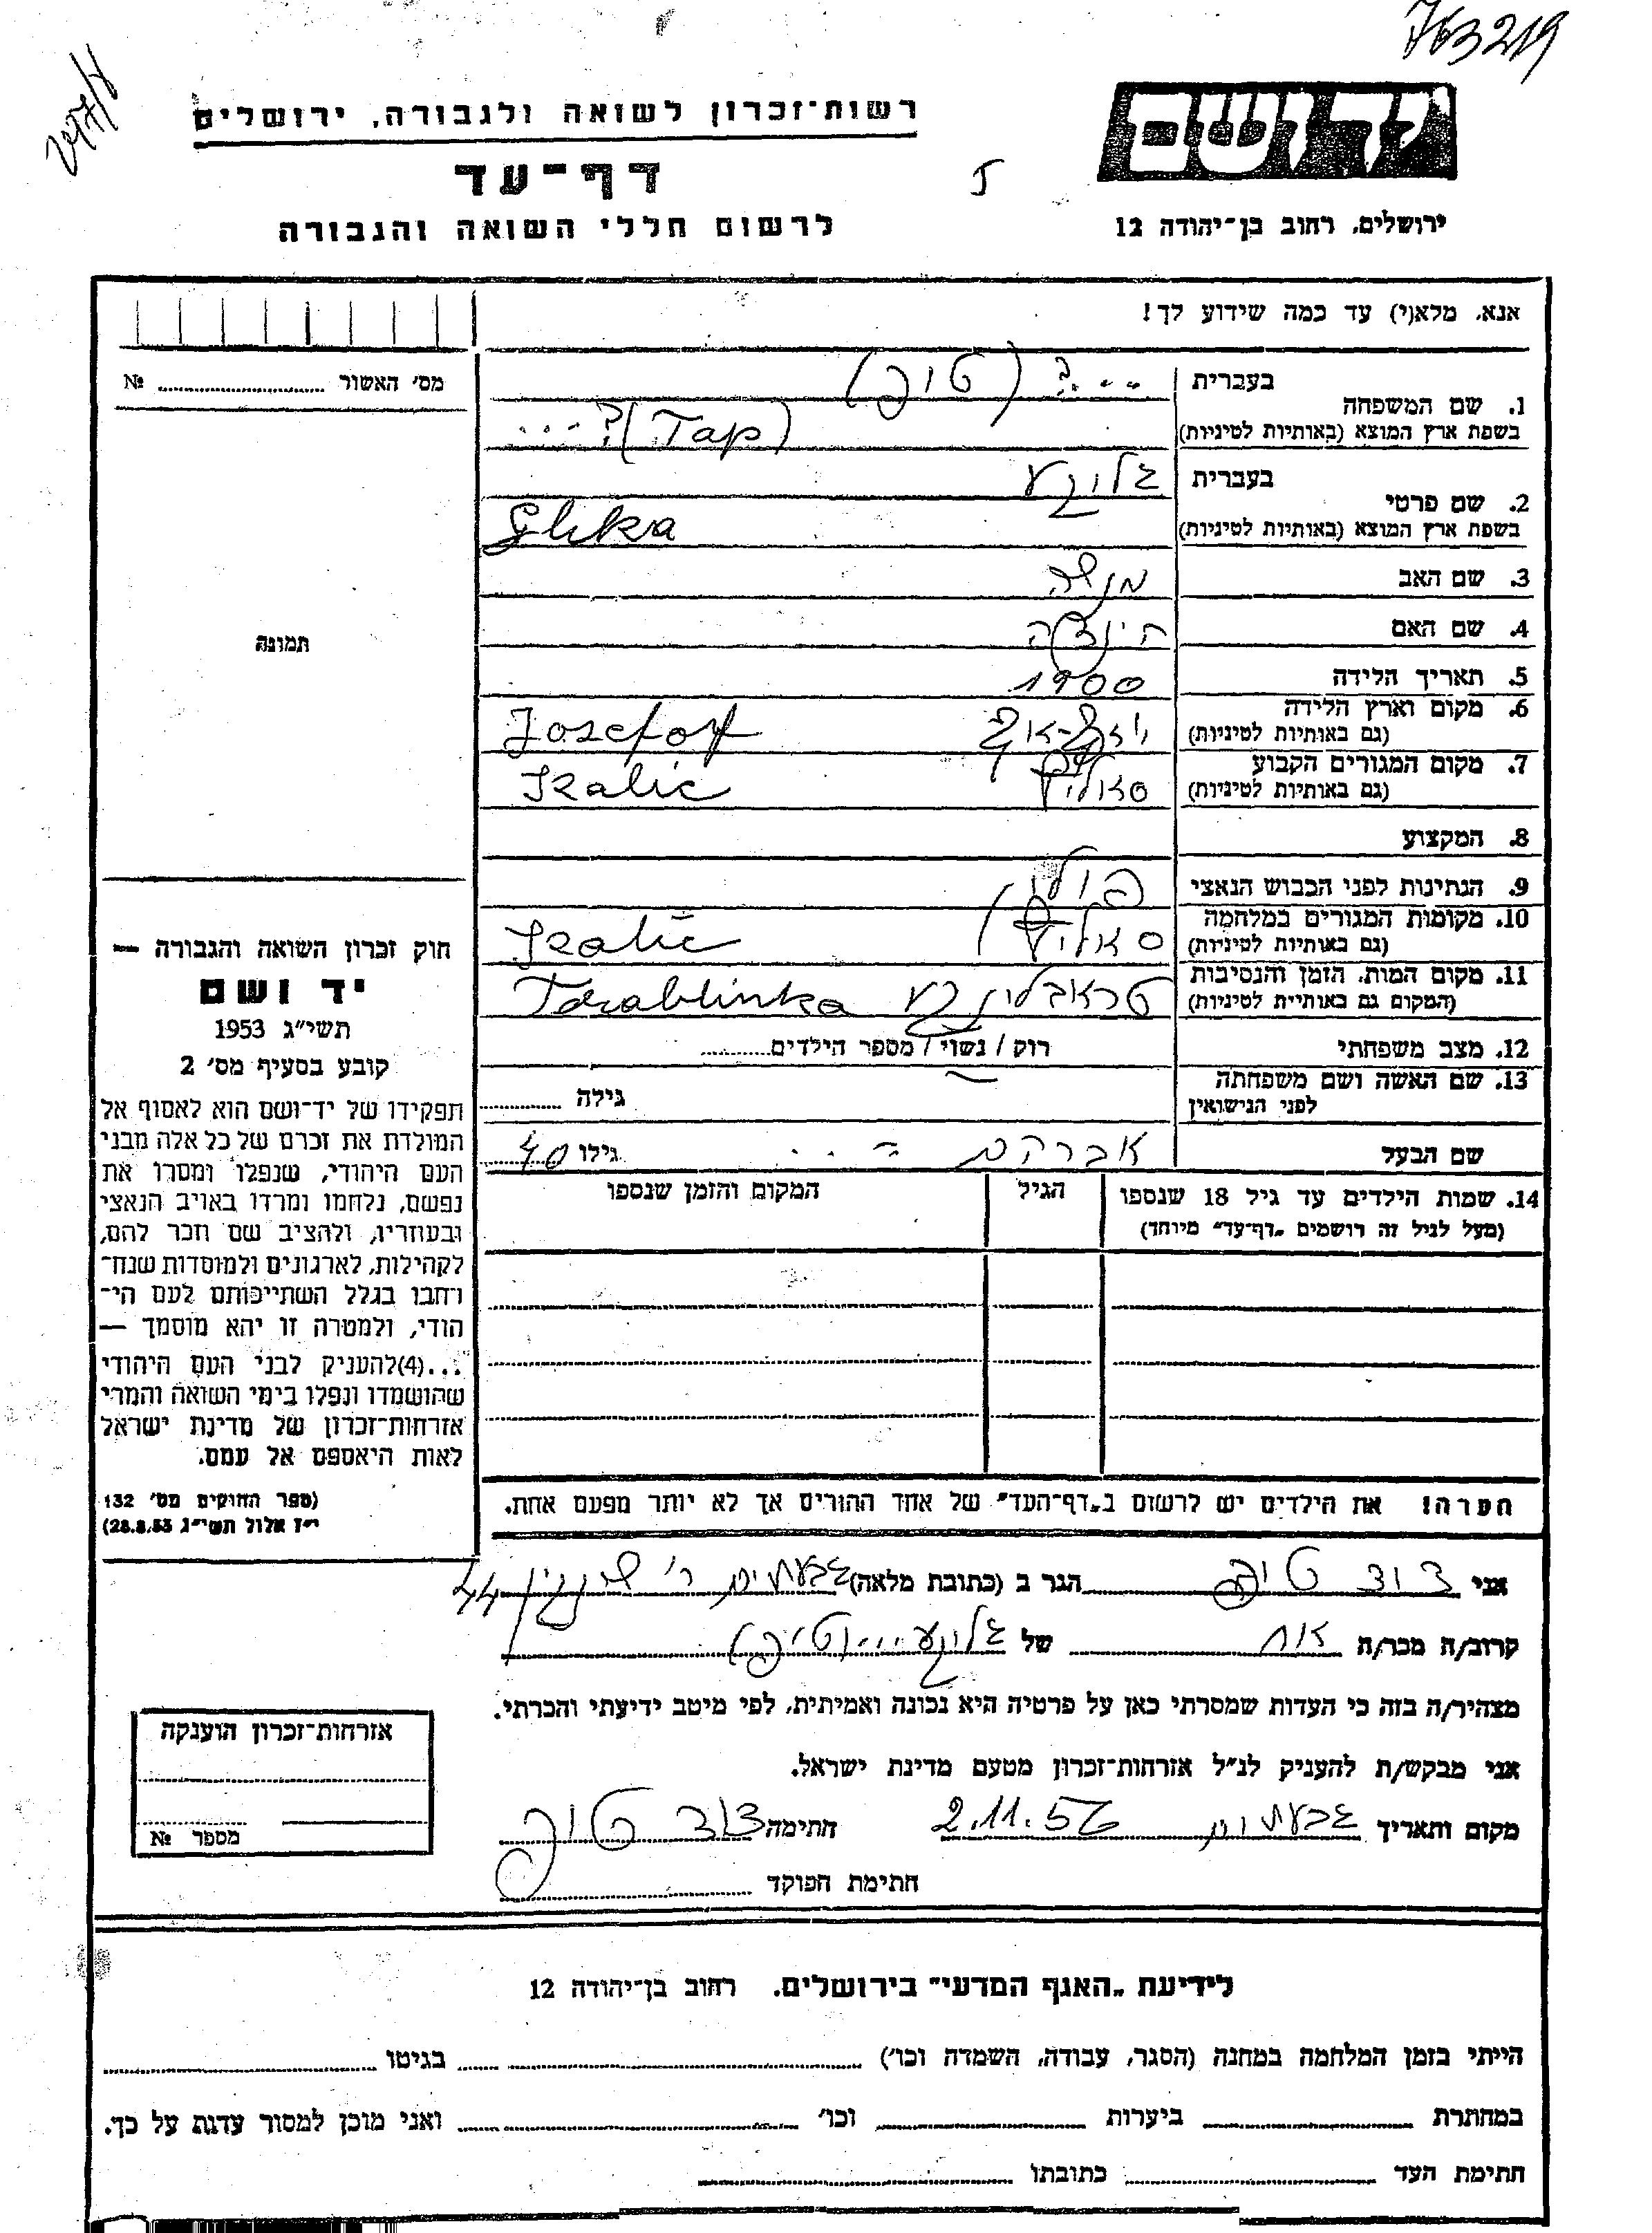 763219
247/8
יד ושם
רשות־זכרון לשואה ולגבורה, ירושלים
דף־עד
לרשום חללי השואה והגבורה
ירושלים, רחוב בן־יהודה 12
אנא, מלא(י) עד כמה שידוע לך!
מס׳ האשור № 
1. שם המשפחה
בעברית ...? (טוף)
בשפת ארץ המוצא (באותיות לטיניות) (Tap)?...
2. שם פרטי
בעברית גליקע
בשפת ארץ המוצא (באותיות לטיניות) Glika
3. שם האב מנשה
4. שם האם הינדה
5. תאריך הלידה 1900
6. מקום וארץ הלידה
(גם באותיות לטיניות) Josefof
7. מקום המגורים הקבוע
(גם באותיות לטיניות)
8. המקצוע
9. הנתינות לפני הכבוש הנאצי פולן
10. מקומות המגורים במלחמה
(גם באותיות לטיניות)
11. מקום המות, הזמן והנסיבות
(המקום גם באותיות לטיניות) טראבלינקע Tdrablinka
12. מצב משפחתי רוק / נשוי / מספר הילדים
13. שם האשה ושם משפחתה
לפני הנישואין גילה
שם הבעל אברהם - ... גילו 40
14. שמות הילדים עד גיל 18 שנספו
(מעל לגיל זה רושמים „דף־עד״ מיוחד)
הגיל
המקום והזמן שנספו
הערה! את הילדים יש לרשום ב„דף־העד״ של אחד ההורים אך לא יותר מפעם אחת.
תמונה
חוק זכרון השואה והגבורה —
יד ושם
תשי״ג 1953
קובע בסעיף מס׳ 2
תפקידו של יד־ושם הוא לאסוף אל
המולדת את זכרם של כל אלה מבני
העם היהודי, שנפלו ומסרו את
נפשם, נלחמו ומרדו באויב הנאצי
ובעוזריו, ולהציב שם וזכר להם,
לקהילות, לארגונים ולמוסדות שנח־
רחבו בגלל השתייכותם לעם הי־
הודי, ולמטרה זו יהא מוסמך —
...(4)להעניק לבני העם היהודי
שהושמדו ונפלו בימי השואה והמרי
אזרחות־זכרון של מדינת ישראל
לאות היאספם אל עמם.
(ספר החוקים מס׳ 132
י״ז אלול תשי״ג 28.8.53)
אני דוד טוף הגר ב (כתובת מלאה) גבעתיים ר׳ 44
קרוב/ה מכר/ה אח של גליקע...(טוף)
מצהיר/ה בזה כי העדות שמסרתי כאן על פרטיה היא נכונה ואמיתית, לפי מיטב ידיעתי והכרתי.
אני מבקש/ת להעניק לנ״ל אזרחות־זכרון מטעם מדינת ישראל.
מקום ותאריך גבעתיים 2.11.56 חתימה דוד טוף
חתימת הפוקד
אזרחות־זכרון הוענקה
מספר №
לידיעת „האגף המדעי״ בירושלים. רחוב בן־יהודה 12
הייתי בזמן המלחמה במחנה (הסגר, עבודה, השמדה וכו׳) בגיטו
במחתרת ביערות וכו׳ ואני מוכן למסור עדות על כך.
חתימת העד כתובתו